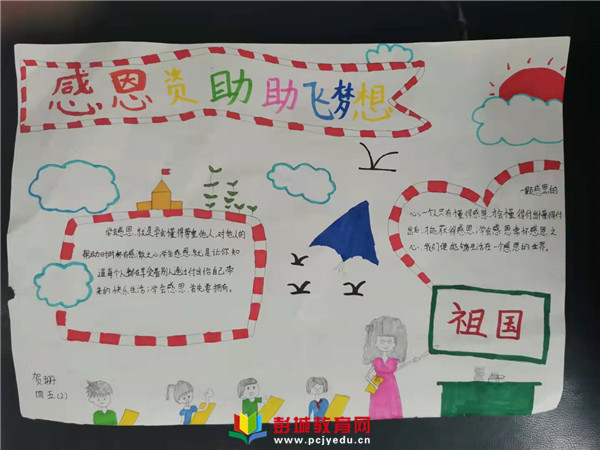 感恩资助助飞梦想
学会感恩,就是学会懂得尊重他人,对他人的
帮助时时怀有感激之心,学会感恩,就是让你知
道每个人都在享受着别人通过付出给自己带
来的快乐生活;学会感恩 首先要拥有。
一颗感恩的
心,一个人只有懂得感恩,才会懂得付出,懂得付
出后,才能获得感恩,学会感恩,常怀感恩之
心,我们便能够生活在一个感恩的世界。
祖国
四五(2)
彭城教育网
www.pcjyedu.cn